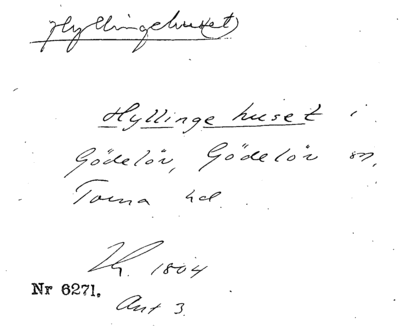 Hyllingehuset
Hyllinge huset i
Gödelöv, Gödelöv sn,
Torna hd.
1804
Nr 6271.
Ant 3.